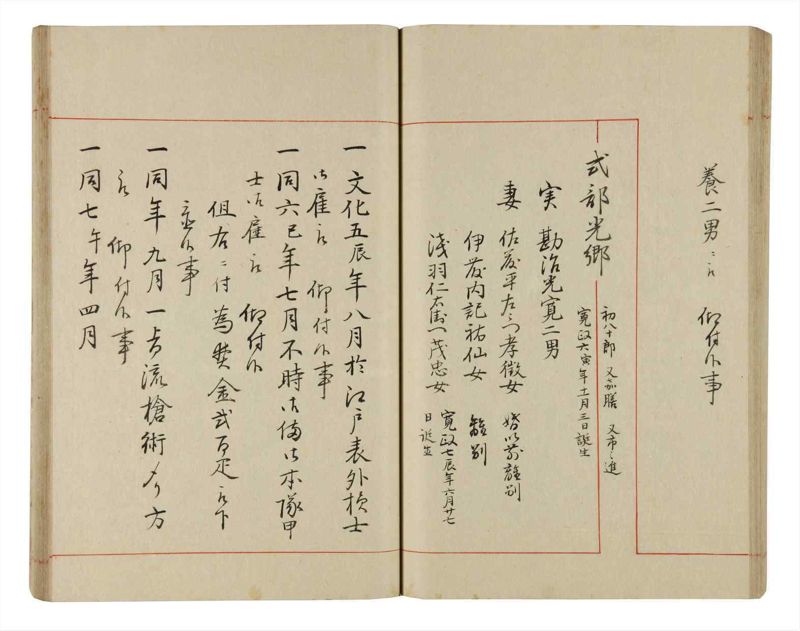 養二男ニ被 仰付候事
式部光郷
初八十郎 又嘉膳 又市之進
寛政六寅年十一月三日誕生
実 勘治光寛二男
妻 佐藤平左衛門孝徴女 婚以前離別
伊藤内記祐仙女 離別
浅羽仁右衛門茂忠女 寛政七辰年六月廿七
日誕生
一文化五辰年八月於江戸表外様士
御雇被 仰付候事
一同六巳年七月不時御備御本隊甲
士御雇被 仰付候
但右ニ付為 金弐百疋被下
置候事
一同年九月一旨流槍術 方
被 仰付候事
一同七午年四月